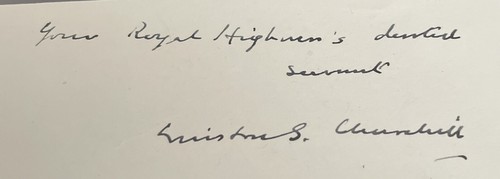 Your Royal Highness's devoted
servant
Winston S. Churchill